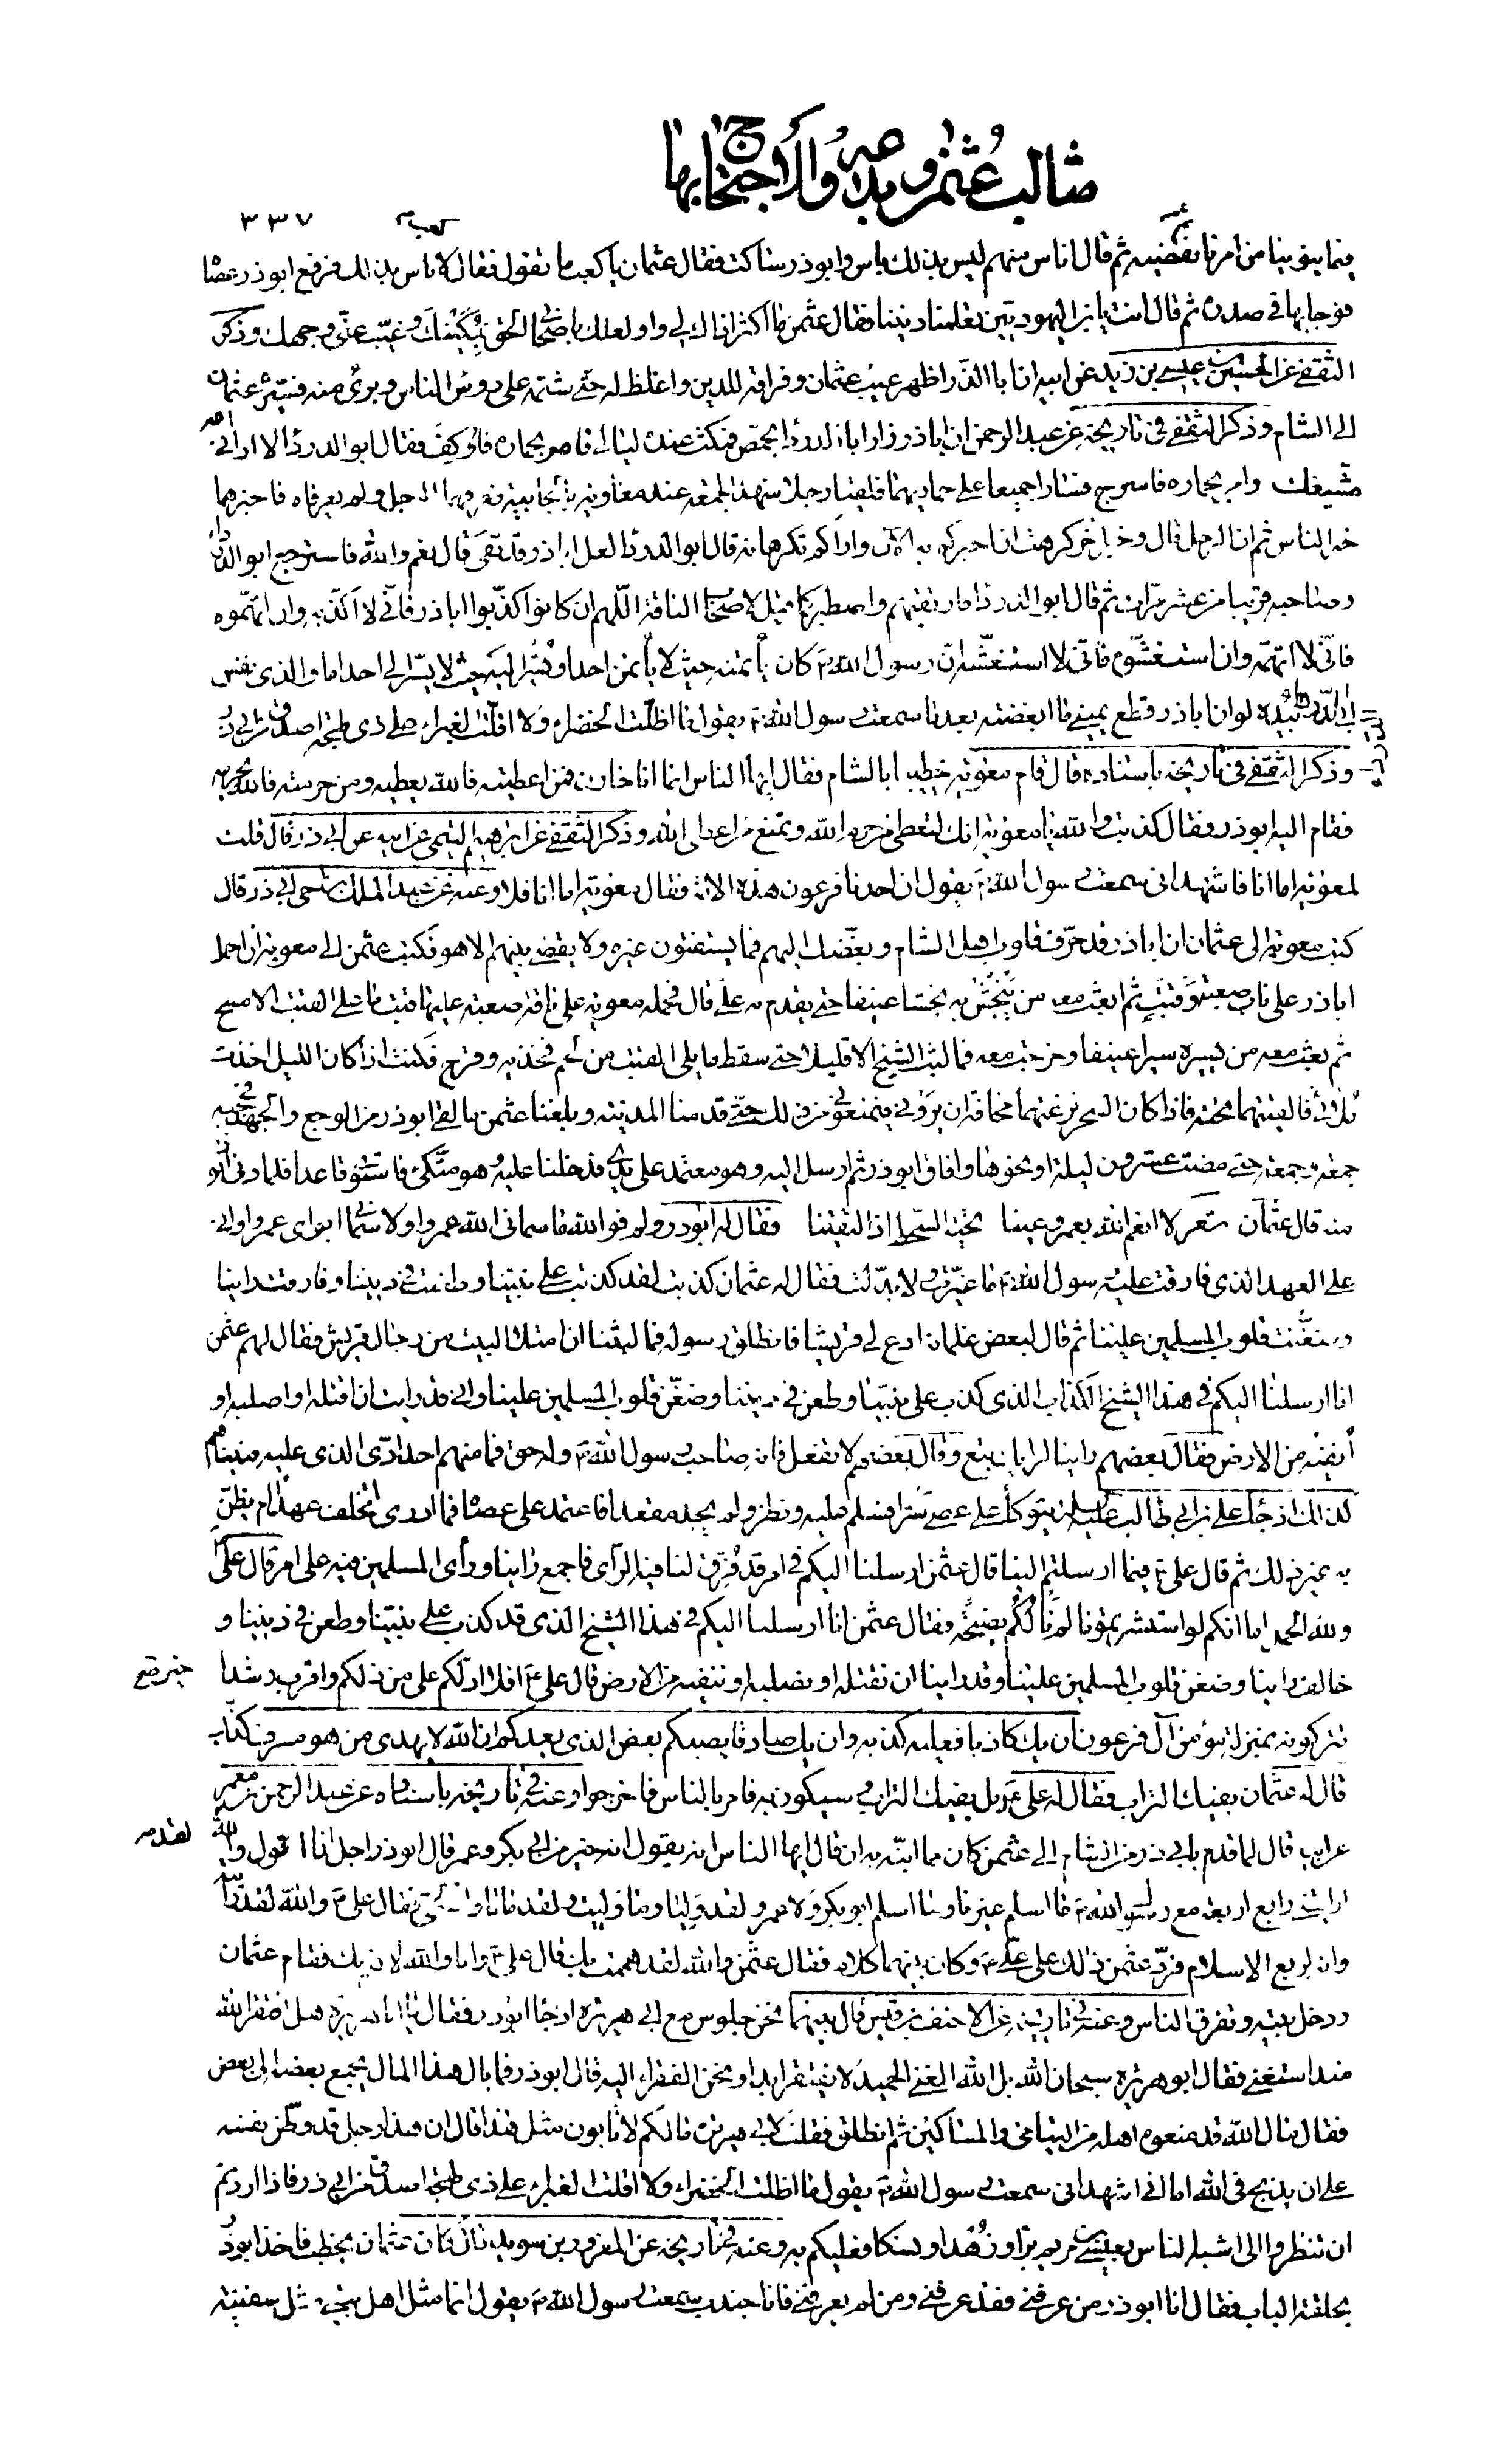 مثالب عثمن و بدعه والاحتجاج بها
٣٣٧
فيما ينوبنا من امرنا ثم نقضيه ثم قال اناس منهم ليس بذلك باس وابوذر ساكت فقال عثمان يا كعب ما تقول فقال لا باس بذلك فرفع ابوذر عصاه
فوجا بها فى صدره ثم قال انت يا بن اليهوديين تعلمنا ديننا فقال عثمن ما اكثر اذاك لى واولعك باصحابى الحق بمكينك وغيب عنى وجهك وذكر
الثقفى عن الحسين بن عيسى بن زيد عن ابيه ان اباالذر اظهر عيب عثمان وفراقه للدين واغلظ له حتى شتمه على رؤس الناس وبرئ منه فسيره عثمان
الى الشام وذكر الثقفى فى تاريخه عن عبد الرحمن ان اباذر زار ابا الدرداء بحمص فمكث عنده ليالى فامر بحماره فاوكف فقال ابو الدرداء لا ارانى
مشيعك وامر بحماره فاسرج فسارا جميعا على حماريهما فلقيا رجلا شهد الجمعة عند معاوية بالجابية فعرفهما الرجل ولم يعرفاه فاخبرهما
خبر الناس ثم ان الرجل قال وخبر اخر كرهت ان اخبركم به الآن واراكم تكرهانه قال ابوالدرداء لعل اباذر قد نفى قال نعم والله فاسترجع ابو الدرداء
وصاحبه قريبا من عشر مرات ثم قال ابو الدرداء فارتقبهم واصطبر كما قيل لاصحاب الناقة اللهم ان كانوا كذبوا اباذر فانى لا اكذبه وان اتهموه
فانى لا اتهمه وان استغشوه فانى لا استغشه ان رسول الله ص كان يأتمنه حيث لا يأتمن احدا ويسر اليه حيث لا يسر الى احد اما والذى نفس
ابى الدرداء بيده لو ان اباذر قطع يمينى ما ابغضته بعد ما سمعت رسول الله ص يقول ما اظلت الخضراء ولا اقلت الغبراء على ذى لهجة اصدق من ابى ذر
وذكر الثقفى فى تاريخه باسناده قال قام معوية خطيبا بالشام فقال ايها الناس انما انا خازن فمن اعطيته فالله يعطيه ومن حرمته فالله يحرمه
فقام اليه ابوذر وقال كذبت والله يا معوية انك لتعطى من حرم الله وتمنع من اعطى الله وذكر الثقفى عن ابرهيم التيمى عن ابيه عن ابى ذر قال قلت
لمعوية اما انا فاشهد انى سمعت رسول الله ص يقول ان احدنا فرعون هذه الامة فقال معوية اما انا فلا وعنه عن عبد الملك بن اخى ابى ذر قال
كتب معوية الى عثمان ان اباذر قد حرف قلوب اهل الشام وبغضك اليهم فما يستفتون غيره ولا يقضى بينهم الا هو فكتب عثمن الى معوية ان احمل
اباذر على ناب صعبة وقتب ثم ابعث معه من ينخش به نخشا عنيفا حتى يقدم به على قال فحمله معوية على ناقة صعبة عليها قتب ما على القتب الا مسح
ثم بعث معه من يسيره سيرا عنيفا وخرجت معه فما لبث الشيخ الا قليلا حتى سقط ما يلى القتب من لحم فخذيه وقرح فكنت اذا كان الليل اخذت
ملائى فالقيتهما تحته فاذا كان السحر نزعتهما مخافة ان يرونى فيمنعونى من ذلك حتى قدمنا المدينة وبلغنا عثمن ما لقى ابوذر من الوجع والجهد فحجبه
جمعة وجمعة حتى مضت عشرون ليلة او نحوها وافاق ابوذر ثم ارسل اليه وهو معتمد على يدى فدخلنا عليه وهو متكئ فاستوى قاعدا فلما دنى ابوذر
منه قال عثمان شعر لا انعم الله بعمرو عينا تحية السخط اذا التقينا فقال له ابوذر ولم فوالله ما سمانى الله عمروا ولا سمانى ابواى عمروا وانى
على العهد الذى فارقت عليه رسول الله ص ما غيرت ولا بدلت فقال له عثمان كذبت لقد كذبت على نبينا وطعنت فى ديننا وفارقت راينا
وضغنت قلوب المسلمين علينا ثم قال لبعض غلمانه ادع لى قريشا فانطلق رسوله فما لبثنا ان امتلا البيت من رجال قريش فقال لهم عثمن
انا ارسلنا اليكم فى هذا الشيخ الكذاب الذى كذب على نبينا وطعن فى ديننا وضغن قلوب المسلمين علينا وانى قد رايت ان اقتله او اصلبه او
انفيه من الارض فقال بعضهم راينا لرايك تبع وقال بعضهم لا تفعل فانه صاحب رسول الله ص وله حق فما منهم احد ادى الذى عليه فبيناهم
كذلك اذ جاء على بن ابى طالب عليه السلم يتوكأ على عصى سترا فسلم عليه ونظر ولم يجد مقعدا فاعتمد على عصاه فما ادرى اتخلف عهد ام يظن
به غير ذلك ثم قال على ع فيما ارسلتم الينا قال عثمن ارسلنا اليكم فى امر قد فرق لنا فيه الرأى فاجمع راينا ورأى المسلمين فيه على امر قال على
ولله الحمد اما انكم لو استشرتمونا لم نألكم نصيحة فقال عثمن انا ارسلنا اليكم فى هذا الشيخ الذى قد كذب على نبينا وطعن فى ديننا و
خالف راينا وضغن قلوب المسلمين علينا وقد راينا ان نقتله او نصلبه او ننفيه من الارض قال على ع افلا ادلكم على خير من ذلكم واقرب رشدا
تتركونه بمنزلة مؤمن آل فرعون ان يك كاذبا فعليه كذبه وان يك صادقا يصبكم بعض الذى يعدكم ان الله لا يهدى من هو مسرف كذاب
قال له عثمان بفيك التراب فقال له على ع بل بفيك التراب وسيكون به فامر بالناس فاخرجوا وعنه فى تاريخه باسناده عن عبد الرحمن بن معمر
عن ابيه قال لما قدم بابى ذر من الشام الى عثمن كان مما ابنه به ان قال ايها الناس انه يقول انه خير من ابى بكر وعمر قال ابوذر اجل انا اقول والله
لقد رايتنى رابع اربعة مع رسول الله ص ما اسلم غيرنا وما اسلم ابو بكر ولا عمر ولقد وليا وما وليت ولقد ماتا وانى لحى فقال على ع والله لقد رايته
وانه لربع الاسلام فرد عثمن ذلك على على ع وكان بينهما كلام فقال عثمن والله لقد هممت بك قال على ع وانا والله لاهم بك فقام عثمان
ودخل بيته وتفرق الناس وعنه فى تاريخه عن الاحنف بن قيس قال بينما نحن جلوس مع ابى هريرة اذ جاء ابوذر فقال يا اباهريرة هل افتقر الله
منذ استغنى فقال ابو هريرة سبحان الله بل الله الغنى الحميد لا يفتقر ابدا ونحن الفقراء اليه قال ابوذر فما بال هذا المال يجمع بعضه الى بعض
فقال مال الله قد منعوه اهله من اليتامى والمساكين ثم انطلق فقلت لابى هريرة ما لكم لا تأبون مثل هذا قال ان هذا رجل قد وطن نفسه
على ان يذبح فى الله اما انى اشهد انى سمعت رسول الله ص يقول ما اظلت الخضراء ولا اقلت الغبراء على ذى لهجة اصدق من ابى ذر فاذا اردتم
ان تنظروا الى اشبه الناس بعيسى بن مريم برا وزهدا ونسكا فعليكم به وعنه فى تاريخه عن المغرور بن سويد قال كان عثمان يخطب فاخذ ابوذر
بحلقة الباب فقال انا ابوذر من عرفنى فقد عرفنى ومن لم يعرفنى فانا جندب سمعت رسول الله ص يقول انما مثل اهل بيتى مثل سفينة